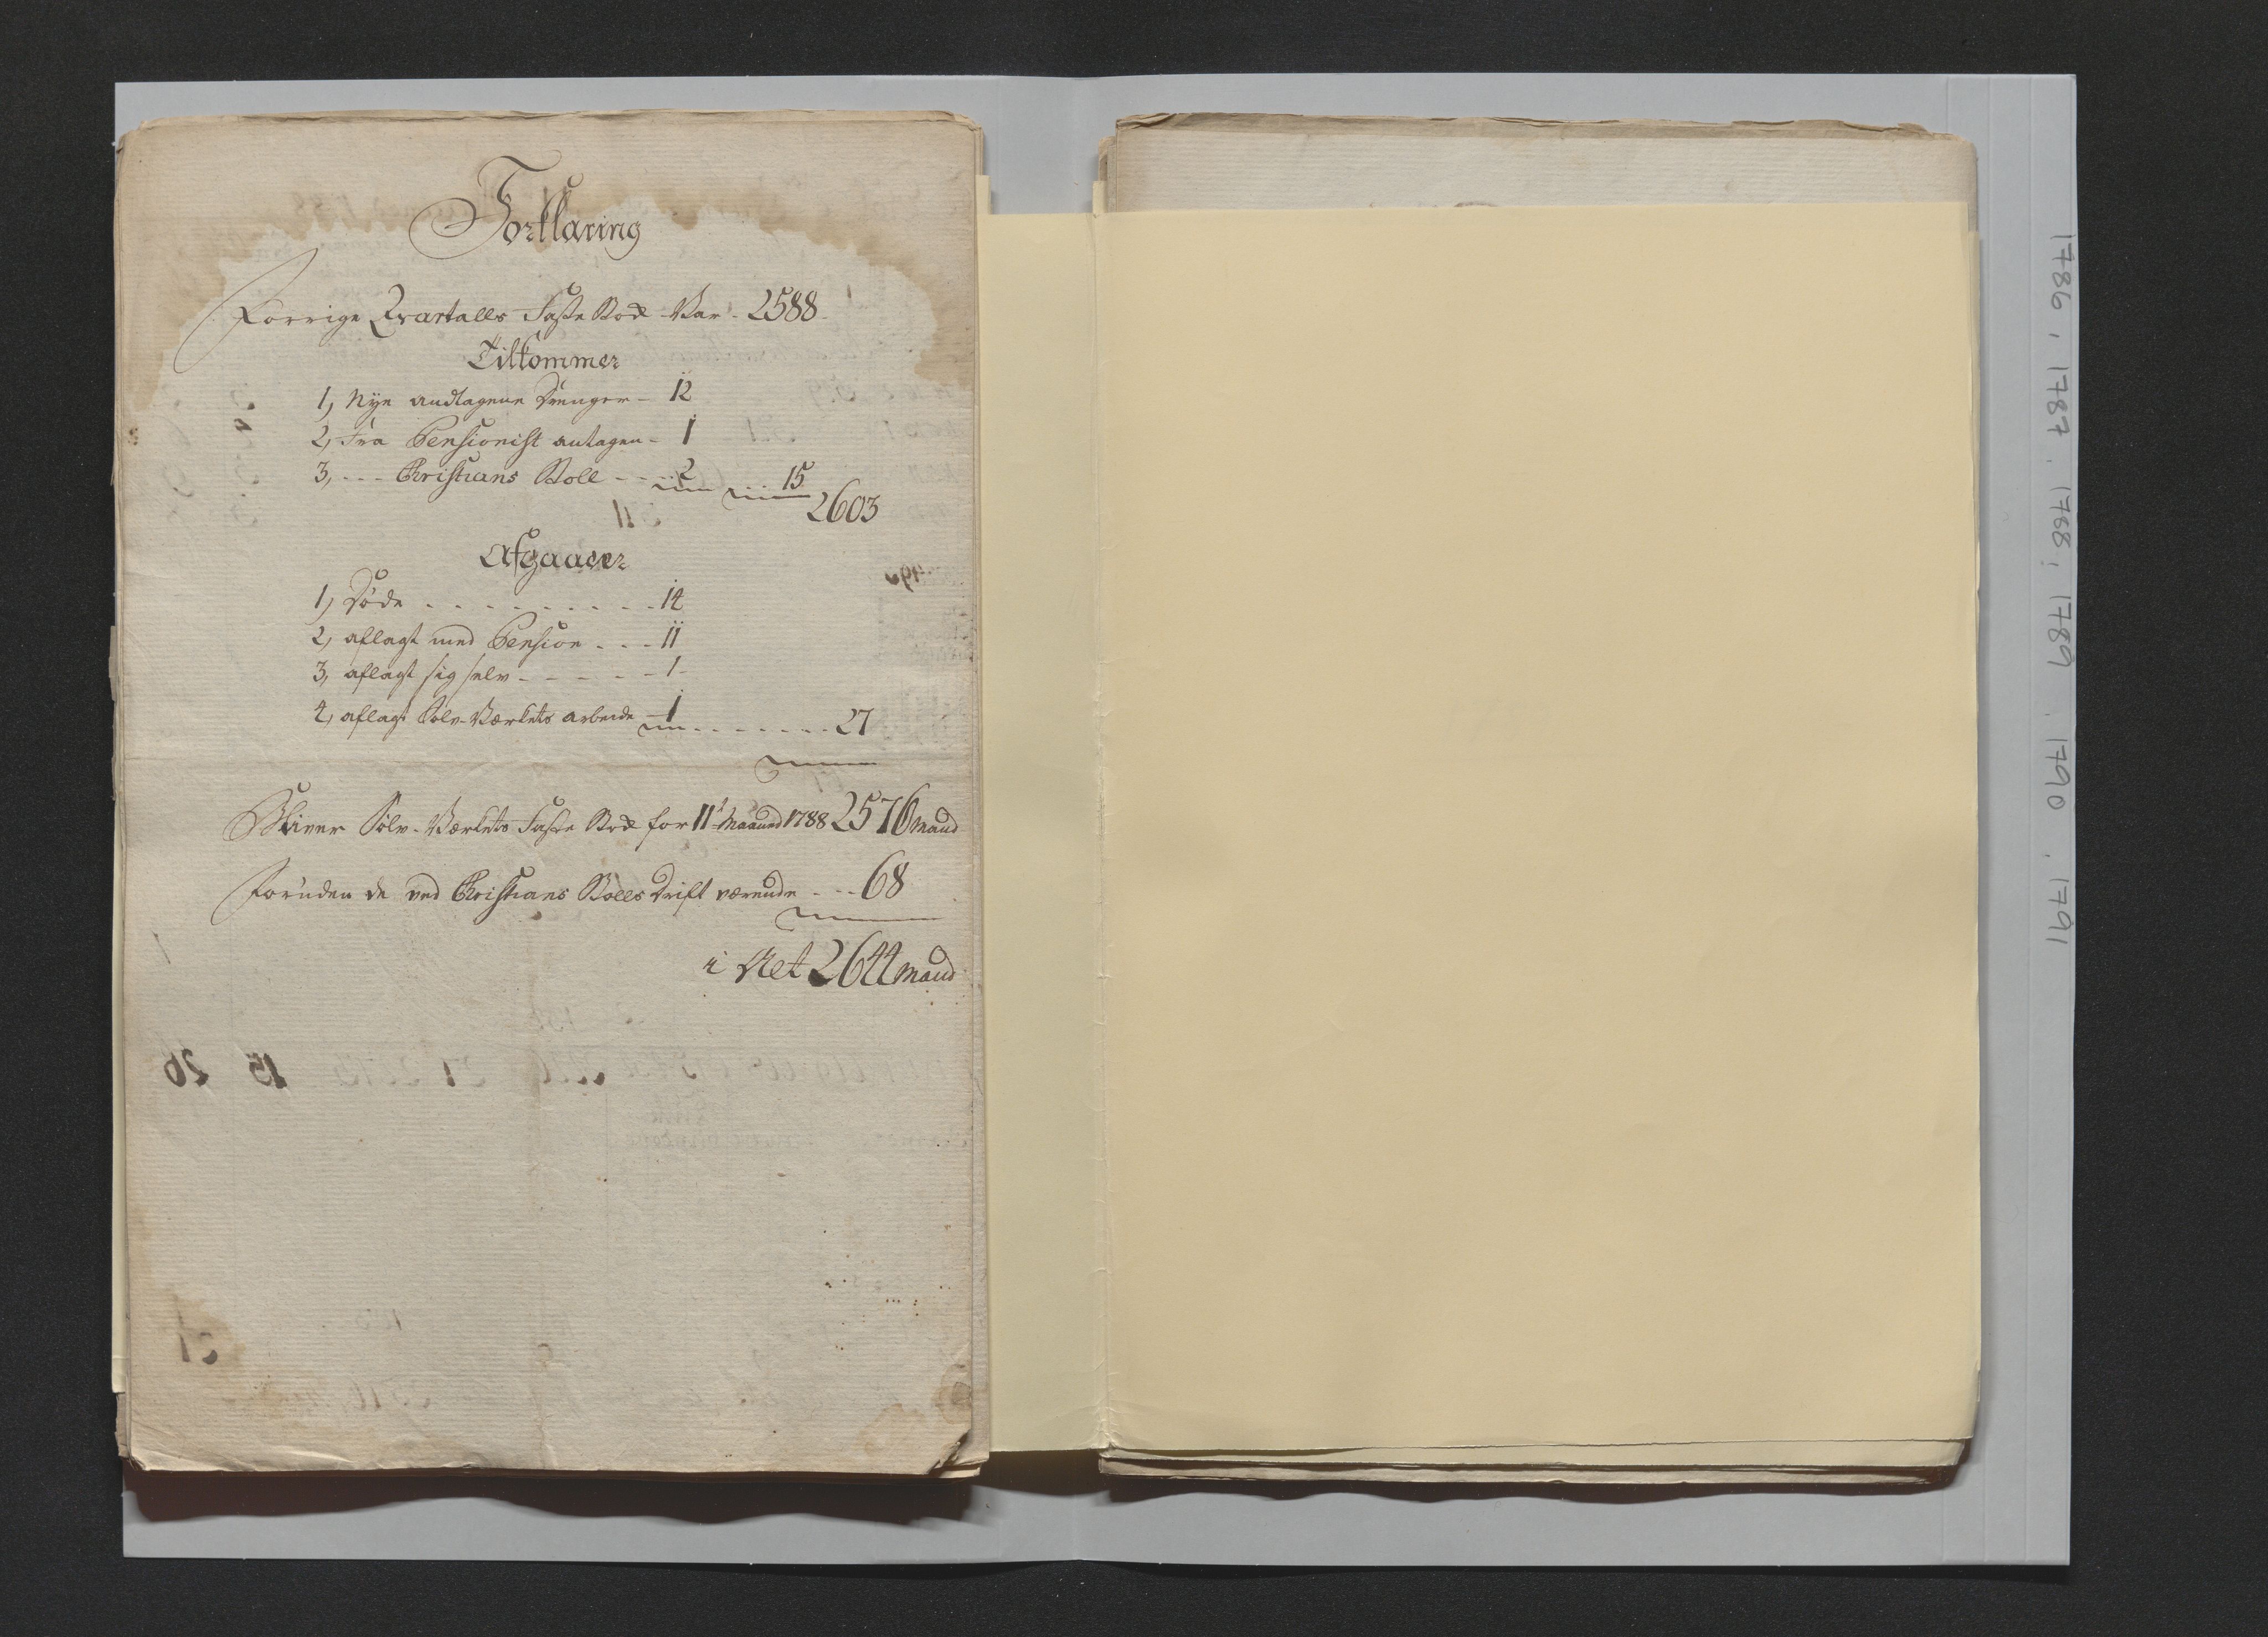 Forklaring
Forrige Qvartalls Faste Stok Var - 2588
Tilkommer
1, Nye andtagene Drenger - 12
2, Fra Pensionist antagen - 1
3, - - - Christians Stoll - - - 2 15
2603
Afgaaer
1, Døde - - - - - - - - - 14
2, aflagt med Pension - - - 11
3, aflagt sig selv - - - - - 1
4, aflagt Sølv-Værkets arbeide - 1 - - - - - - - 27
Bliver Sølv-Værkets Faste Stok for 11t Maaned 1788 2576 mand
Foruden de ved Christians Stolls Drift værende - - - 68
i Alt 2644 mand
1786, 1787. 1788, 1789. 1790. 1791